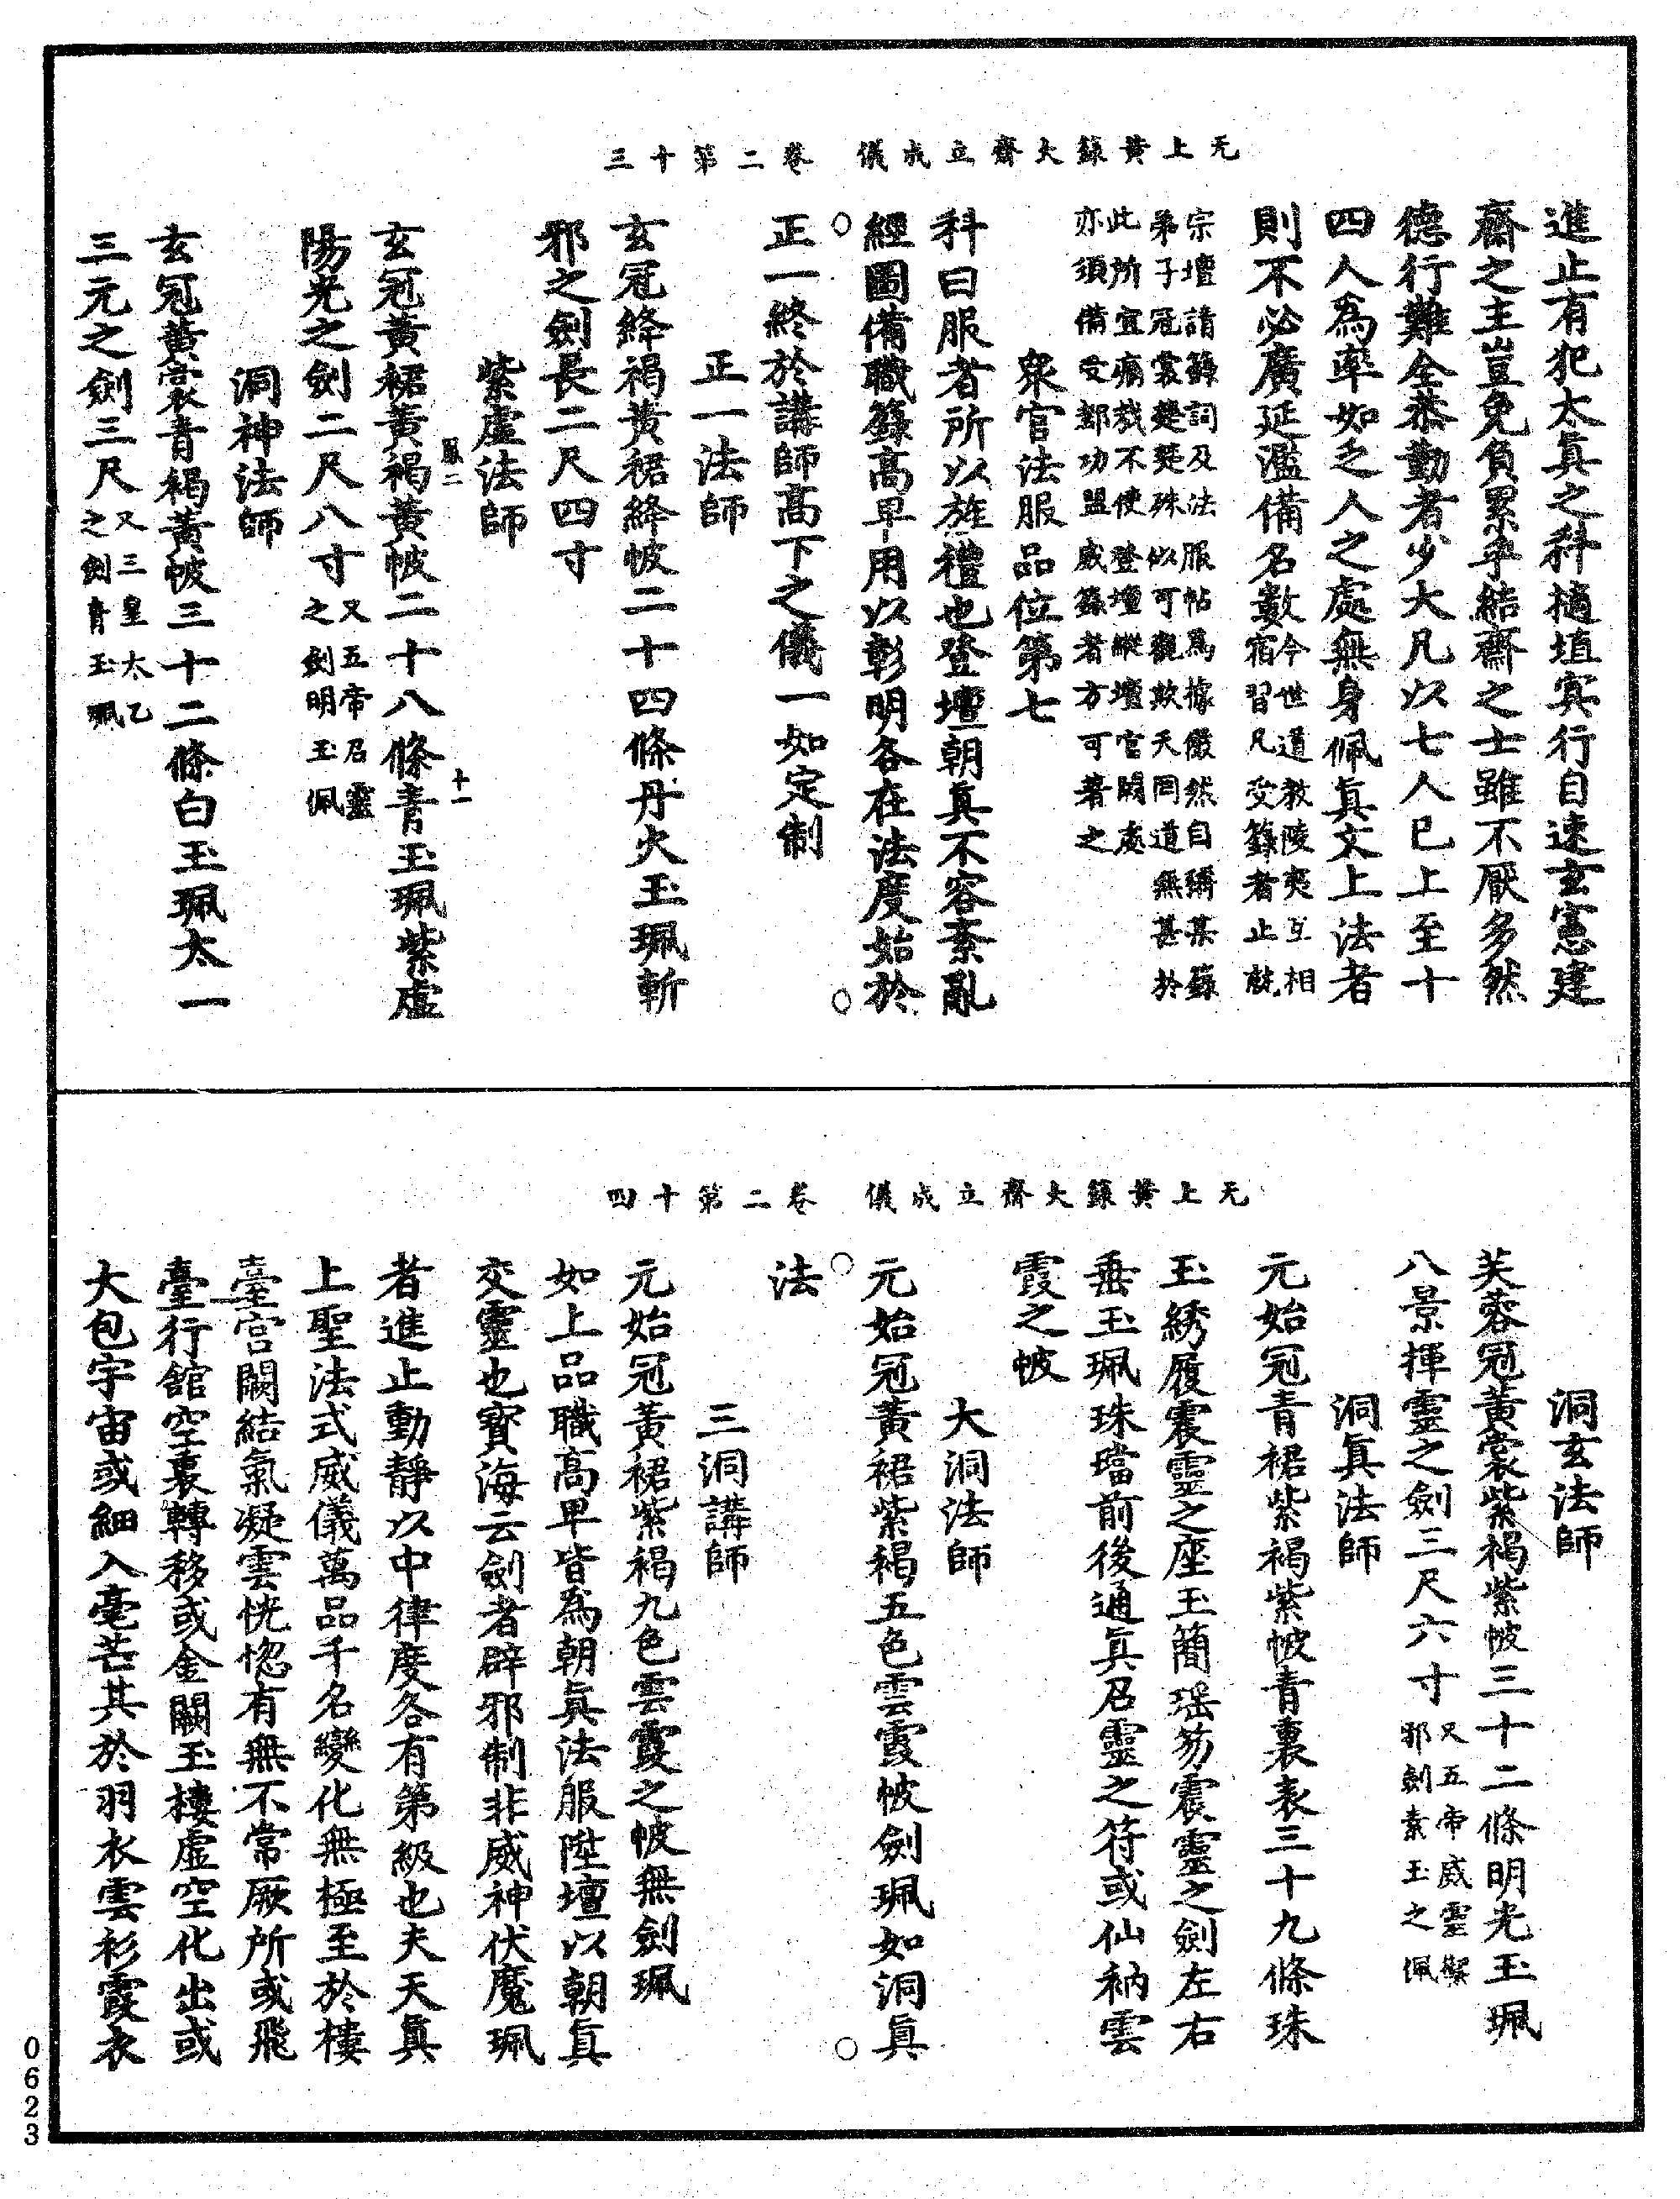 无上黃籙大齋立成儀　卷二第十三
進止有犯太眞之科擿埴㝠行自速玄憲建
齋之主豈免負累乎結齋之士雖不厭多然
德行難全恭勤者少大凡以七人巳上至十
四人爲率如乏人之處無身佩眞文上法者
則不必廣延濫備名數今世道教陵夷互相
宿習凡受籙者止就
宗壇請籙詞及法服帖爲據儼然自稱某籙
弟子冠裳楚楚殊似可觀欺天罔道無甚於
此所宜痛戒不使登壇縱壇官闕處
亦須備受都功盟威籙者方可著之
衆官法服品位第七
科曰服者所以旌禮也登壇朝眞不容紊亂
經圖備職籙高卑用以彰明各在法度始於
正一終於講師高下之儀一如定制
正一法師
玄冠絳褐黃裙絳帔二十四條丹火玉珮斬
邪之劍長二尺四寸
紫虛法師
鳳二　十一
玄冠黃裙黃褐黃帔二十八條青玉珮紫虛
陽光之劍二尺八寸又五帝召靈
之劍明玉佩
洞神法師
玄冠黃裳青褐黃帔三十二條白玉珮太一
三元之劍三尺又三皇太乙
之劍青玉珮
无上黃籙大齋立成儀　卷二第十四
洞玄法師
芙蓉冠黃裳紫褐紫帔三十二條明光玉珮
八景揮靈之劍三尺六寸又五帝威靈禦
邪劍素玉之佩
洞眞法師
元始冠青裙紫褐紫帔青裏表三十九條珠
玉綉履震靈之座玉簡瑶笏震靈之劍左右
垂玉珮珠璫前後通眞召靈之符或仙衲雲
霞之帔
大洞法師
元始冠黃裙紫褐五色雲霞帔劍珮如洞眞
法
三洞講師
元始冠黃裙紫褐九色雲霞之帔無劍珮
如上品職高卑皆爲朝眞法服陞壇以朝眞
交靈也寳海云劍者辟邪制非威神伏魔珮
者進止動靜以中律度各有第級也夫天眞
上聖法式威儀萬品千名變化無極至於樓
臺宫闕結氣凝雲恍惚有無不常厥所或飛
臺行館空裏轉移或金闕玉樓虛空化出或
大包宇宙或細入毫芒其於羽衣雲衫霞衣
0623